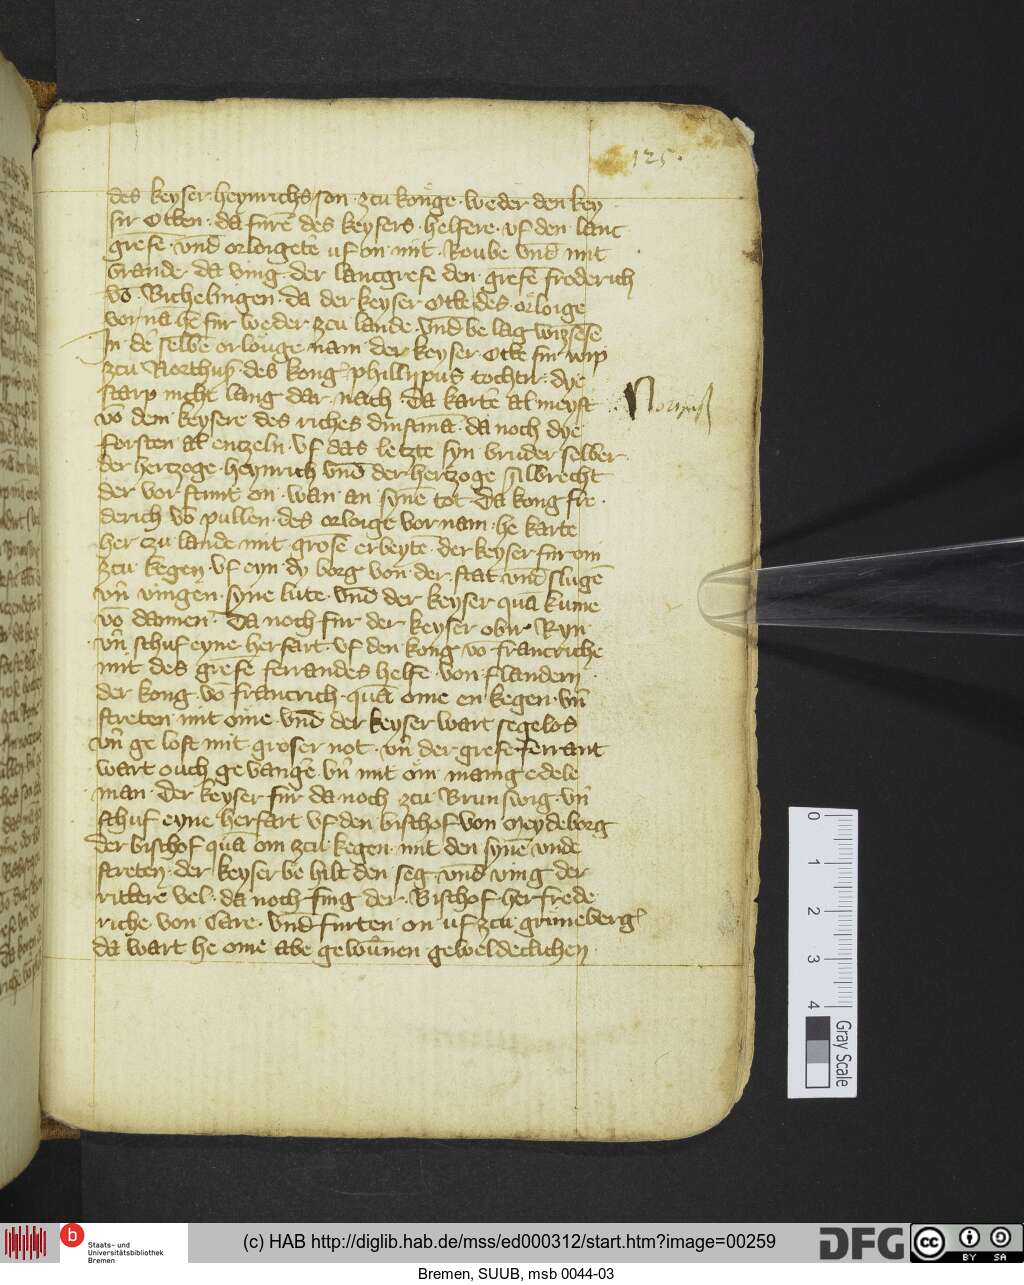 125.
des keyser heynrichs son · zcu konge · weder den key
sir Otten · da fůrē des keysers · helfere · vf den · lanc
grefē · vnd orloigetē uf on · mit · Roube vnd mit
brande · da ving · der lantgrefe den · grefē frederich
vō · Bichelingen · da der keyser otte des orloige
vor nā he fur weder · zcu lande · vnd be lag wysēsē
In de selbē orlouge nam der keyser · Otte sin wip
zcu Northusz · des kong phillippus tochtir · dye
starp nicht lang dar · nach · Da kartē al meyst
Northusz
vō dem keysere des riches dinstmā · da noch dye
forsten al entzeln · vf das letzte syn bruder selber
der hertzoge · heynrich vnd der hertzoge albrecht
der vor stunt on · wan an synē tot · Da kong fre
derich vō pullen · des orloige vornam · he karte
her czu lande mit grosē erbeytē · der keyser fur om
zcu kegen vf eyn · dy borg von · der · stat vnd slugē
vn̄ vingēn · syne lute · vnd der keyser quā kume
vō dannen · Da noch fur der keyser obir · Ryn
vn̄ schuf eyne · herfart · vf den kong vō francriche
mit des grefē ferrandes helfe · von · flandern
der kong · vō francrich · quā ome en kegen · vn̄
streten mit ome · vnd der keyser wart segelos
vn̄ ge lost mit groser not · vn̄ der grefe ferrant
wart ouch ge vangē · vn̄ mit om manig edele
man · Der keyser fur da noch zcu Brunswig · vn̄
schuf eyne herfart vf den bischof von Meydeborg
der bischof quā om zcu kegen · mit den synē vnde
streten · der keyser be hilt den seg vnd ving der
rittere vel · da noch fing der · Bischof her frede
riche von Care · vnd furten on uf zcu gruneberg
da wart he ome abe gewunen geweldeclichen ·
0
1
2
3
4
Gray Scale
b
Staats- und
Universitätsbibliothek
Bremen
(c) HAB http://diglib.hab.de/mss/ed000312/start.htm?image=00259
DFG
cc BY SA
Bremen, SUUB, msb 0044-03